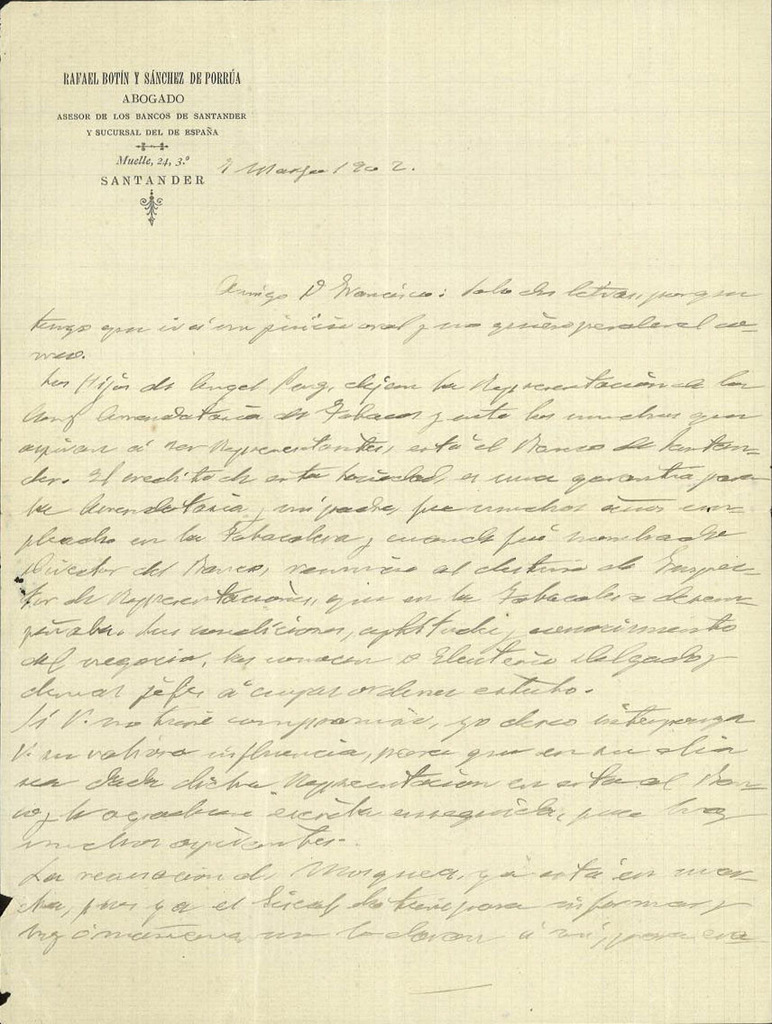 RAFAEL BOTÍN Y SÁNCHEZ DE PORRÚA
ABOGADO
ASESOR DE LOS BANCOS DE SANTANDER
Y SUCURSAL DEL DE ESPAÑA
Muelle, 24, 3.º
SANTANDER
Marzo 1902.
Amigo D Francisco: Solo dos letras, porque
tengo que ir á un juicio oral y no quiero perder el co-
rreo.
Los Hijos de Angel dejan la Representación de la
Arrendataria de Tabacos y entre los muchos que
aspiran á ser Representantes, está el Banco de Santan-
der. El credito de esta sociedad, es una garantia para
la Arrendataria y mi padre, fue muchos años em-
pleado en la Tabacalera y cuando fué nombrado
Director del Banco, renunció al destino de Inspec-
tor de Representaciones, que en la Tabacalera desem-
peñaba. Sus condiciones, aptitudes y conocimiento
del negocio, las conocen Eleuterio Delgado y
demas jefes á cuyas ordenes estubo.
Si V. no tiene compromiso, yo deseo interponga
V. su valiosa influencia, para que en su dia
sea dada dicha Representacion en esta al Ban-
co, y enseguida, pues hay
muchos aspirantes.
La de ya está en mar-
cha, pues ya el Fiscal la tiene para informar y
hoy ó mañana me la á mi, para eva-